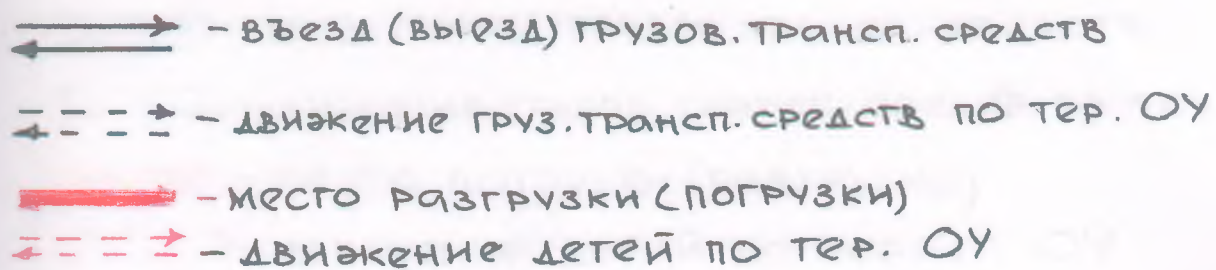 - въезд (выезд) грузов. трансп. средств
- движение груз. трансп. средств по тер. ОУ
- место разгрузки (погрузки)
- движение детей по тер. ОУ